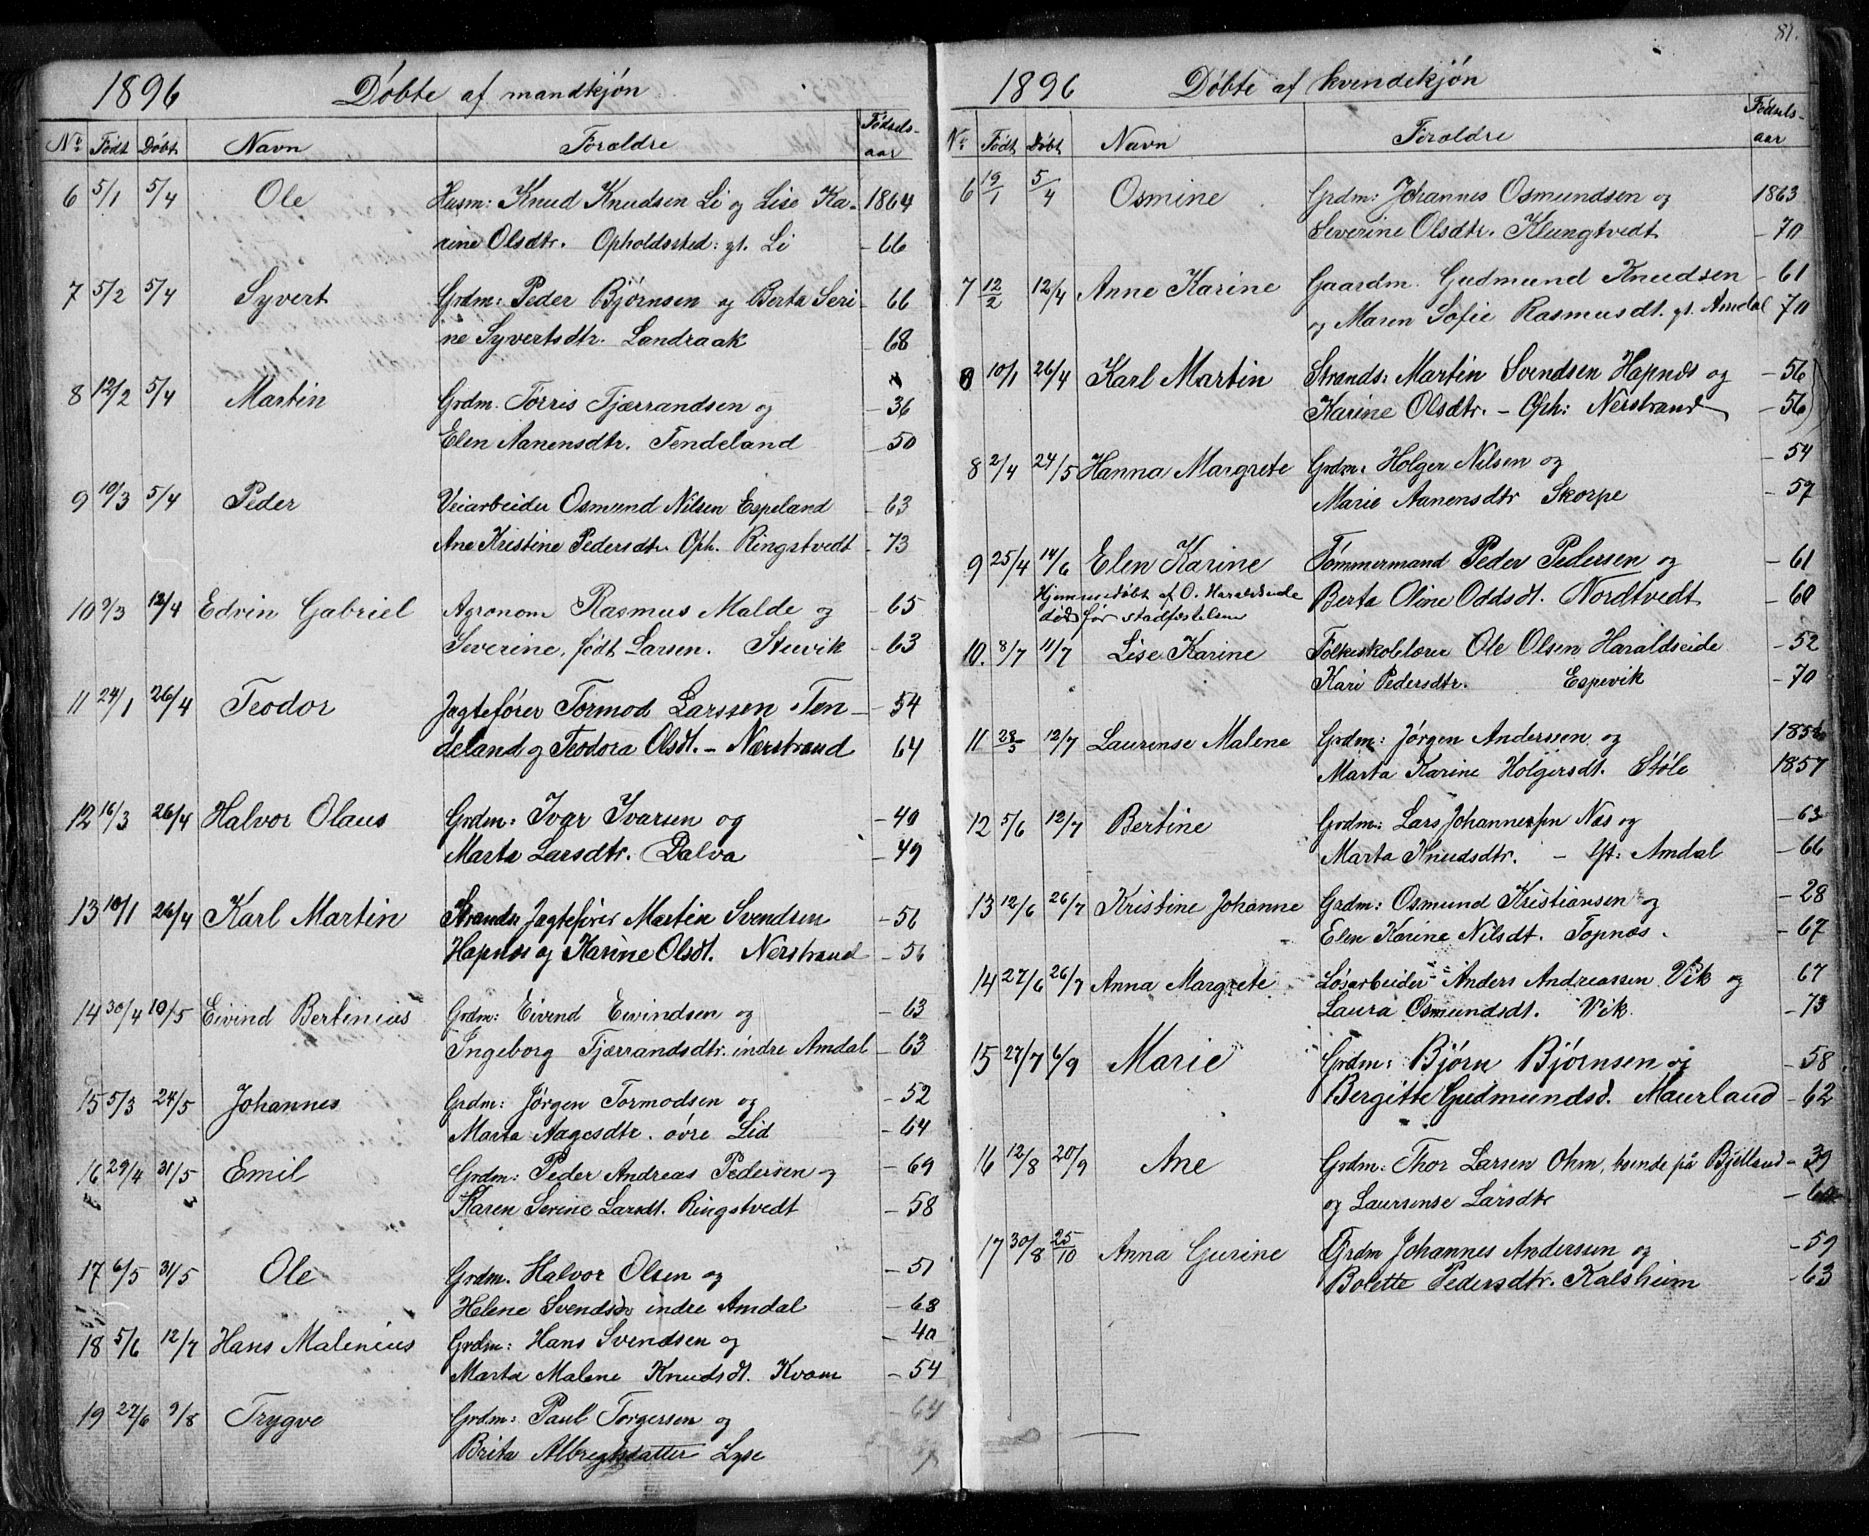 1896 Døbte af mandkjøn
No Født Døbt Navn Foraldre Fødsels-
aar
6 5/1 5/4 Ole Husm: Knud Knudsen Li og Lise Ka- 1864
rine Olsdtr. Opholdssted: gt. Li - 66
7 5/2 5/4 Syvert Grdm: Peder Bjørnsen og Berta Seri- - 66
ne Syvertsdtr. Landraak - 68
8 12/2 5/4 Martin Grdm. Torris Tjærrandsen og - 36
Elen Aanensdtr. Tendeland - 50
9 10/3 5/4 Peder Veiarbeider Osmund Nilsen Espeland - 63
Ane Kristine Pedersdtr. Oph. Ringstvedt - 73
10 9/3 12/4 Edvin Gabriel Agronom Rasmus Malde og - 65
Severine, født Larsen. Stuvik - 63
11 24/1 26/4 Teodor Jagtefører Tormod Larssen Ten- - 54
deland og Teodora Olsdt. - Nærstrand 64
12 16/3 26/4 Halvor Olaus Grdm: Ivar Ivarsen og - 40
Marta Larsdtr. Dalva - 49
13 10/1 26/4 Karl Martin Strands: Jagtefører Martin Svendsen - 56
Hapnæs og Karine Olsdt. Nerstrand - 56
14 30/4 10/5 Eivind Bertinius Grdm: Eivind Eivindsen og - 63
Ingeborg Tjærrandsdtr. indre Amdal - 63
15 5/3 24/5 Johannes Grdm: Jørgen Tormodsen og - 52
Marta Aagesdtr. øvre Lid - 64
16 29/4 31/5 Emil Grdm: Peder Andreas Pedersen og - 69
Karen Serine Larsdt. Ringstvedt - 58
17 6/5 31/5 Ole Grdm. Halvor Olsen og - 51
Helene Svendsdr indre Amdal - 68
18 5/6 12/7 Hans Malenius Grdm: Hans Svendsen og - 40
Marta Malene Knudsdt. Kvam - 54
19 27/6 9/8 Trygve Grdm: Paul Torgersen og - 64
Brita Albregtsdatter Lyse
81.
1896 Døbte af kvindekjøn
No Født Døbt Navn Foraldre Fødsels-
aar
6 19/1 5/4 Osmine Grdm: Johannes Osmundsen og 1863
Severine Olsdtr. Klungtvedt - 70
7 12/2 12/4 Anne Karine Gaardm. Gudmund Knudsen - 61
og Maren Sofie Rasmusdt. gt. Amdal 70
8 10/1 26/4 Karl Martin Strands: Martin Svendsen Hapnæs og - 56
Karine Olsdtr. - Oph: Nerstrand - 56
8 2/4 24/5 Hanna Margrete Grdm: Holger Nilsen og - 54
Marie Aanensdtr Skorpe - 57
9 25/4 14/6 Elen Karine Tømmermand Peder Pedersen og - 61
Hjemmedøbt af O. Haraldseide Berta Oline Oddsdt. Nordtvedt - 60
død før stadfæstelsen
10. 8/7 11/7 Lise Karine Folkeskolelærer Ole Olsen Haraldseide - 52
Kari Pedersdtr. Espevik - 70
11 28/5 12/7 Laurense Malene Grdm: Jørgen Anderssen og 1856
Marta Karine Holgersdt. Støle 1857
12 5/6 12/7 Bertine Grdm: Lars Johannessen Næs og - 63
Marta Knudsdtr. - gt: Amdal - 66
13 12/6 26/7 Kristine Johanne Grdm: Osmund Kristiansen og - 28
Elen Karine Nilsdt. Topnæs. - 67
14 27/6 26/7 Anna Margrete Løsarbeider Anders Andreassen Vik og 67
Laura Osmundsdt. Vik. - 73
15 27/7 6/9 Marie Grdm: Bjørn Bjørnsen og - 58
Bergitte Gudmundsd. Maurland - 62
16 12/8 20/9 Ane Grdm: Thor Larsen Ohm, boende på Bjelland - 39
og Laurense Larsdtr
17 30/8 25/10 Anna Gurine Grdm Johannes Andersen og - 59
Bolette Pedersdtr. Kalsheim - 63